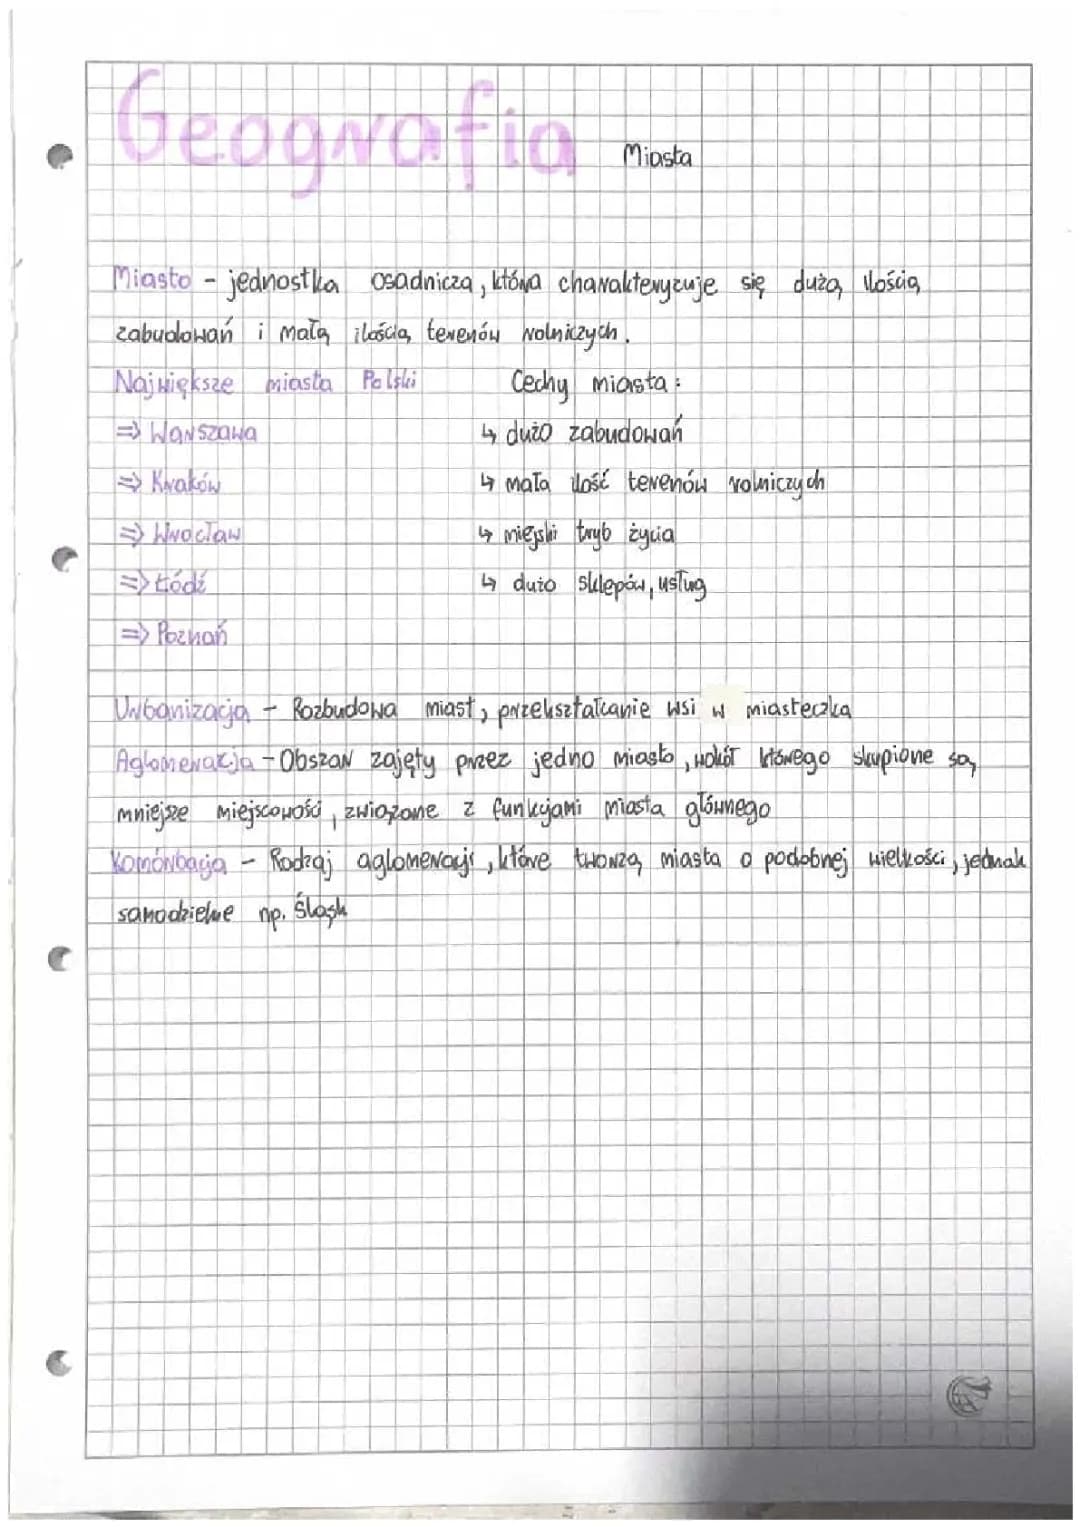 Geografia Miasta
Miasto - jednostka osadnicza, która charakteryzuje się dużą ilością
zabudowań i małą ilością terenów rolniczych.
Największe miasta Polski
Cechy miasta:
⇒ Warszawa
↳ dużo zabudowań
⇒ Kraków
↳ mała ilość terenów rolniczych
⇒ Wrocław
↳ miejski tryb życia
⇒ Łódź
↳ dużo sklepów, usług
⇒ Poznań
Urbanizacja - Rozbudowa miast, przekształcanie wsi w miasteczka
Aglomeracja - Obszar zajęty przez jedno miasto, wokół którego skupione są
mniejsze miejscowości, związane z funkcjami miasta głównego
Komórbacja - Rodzaj aglomeracji, które tworzą miasta o podobnej wielkości, jednak
samodzielne np. Śląsk